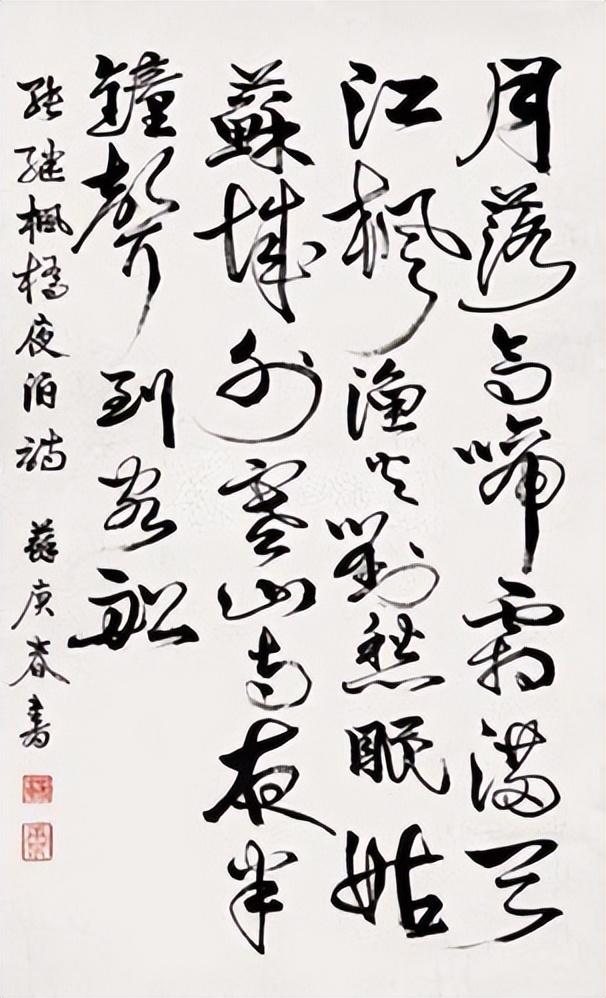 月落烏啼霜滿天
江楓漁火對愁眠姑
蘇城外寒山寺夜半
鐘聲到客船
張繼楓橋夜泊詩 蘇庚春書